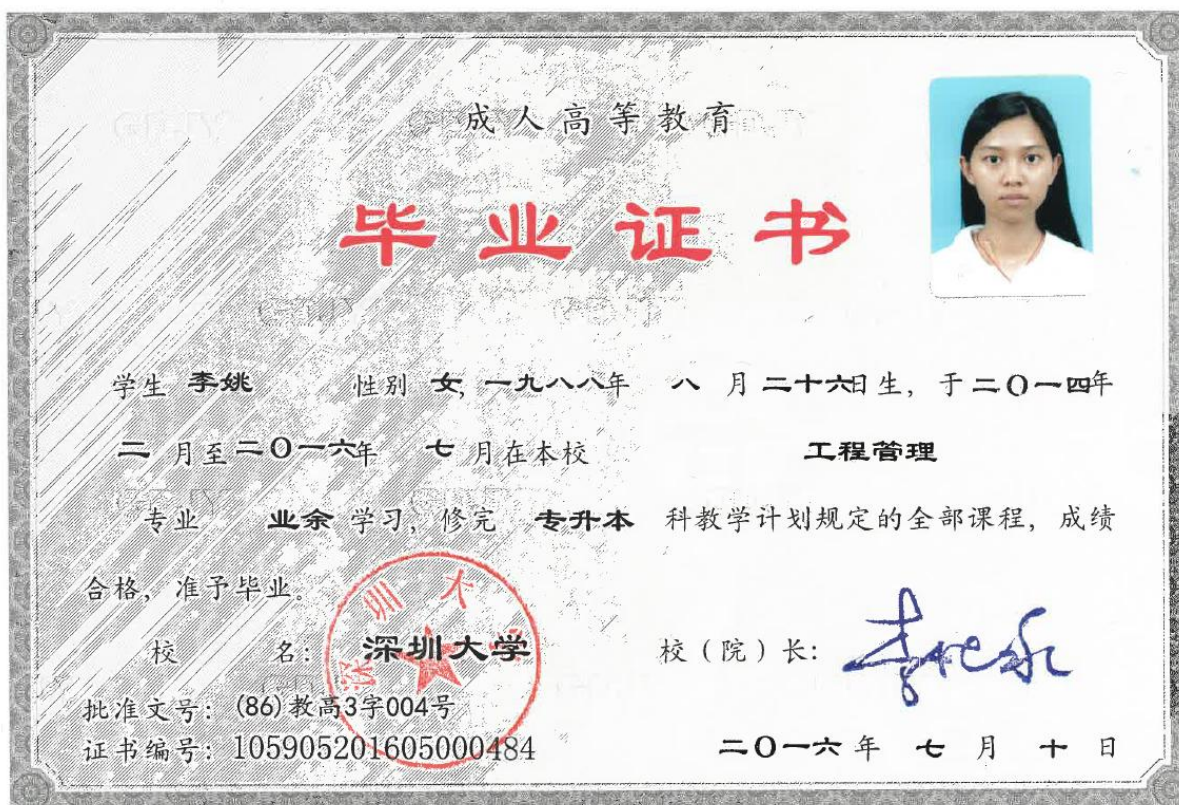 成人高等教育
毕业证书
学生 李姚 性别 女, 一九八八年 八 月 二十六日生, 于二〇一四年
二 月至二〇一六年 七 月在本校 工程管理
专业 业余 学习, 修完 专升本 科教学计划规定的全部课程, 成绩
合格, 准予毕业。
校 名: 深圳大学 校(院)长:
批准文号: (86)教高3字004号
证书编号: 105905201605000484 二〇一六年 七 月 十 日
深圳大